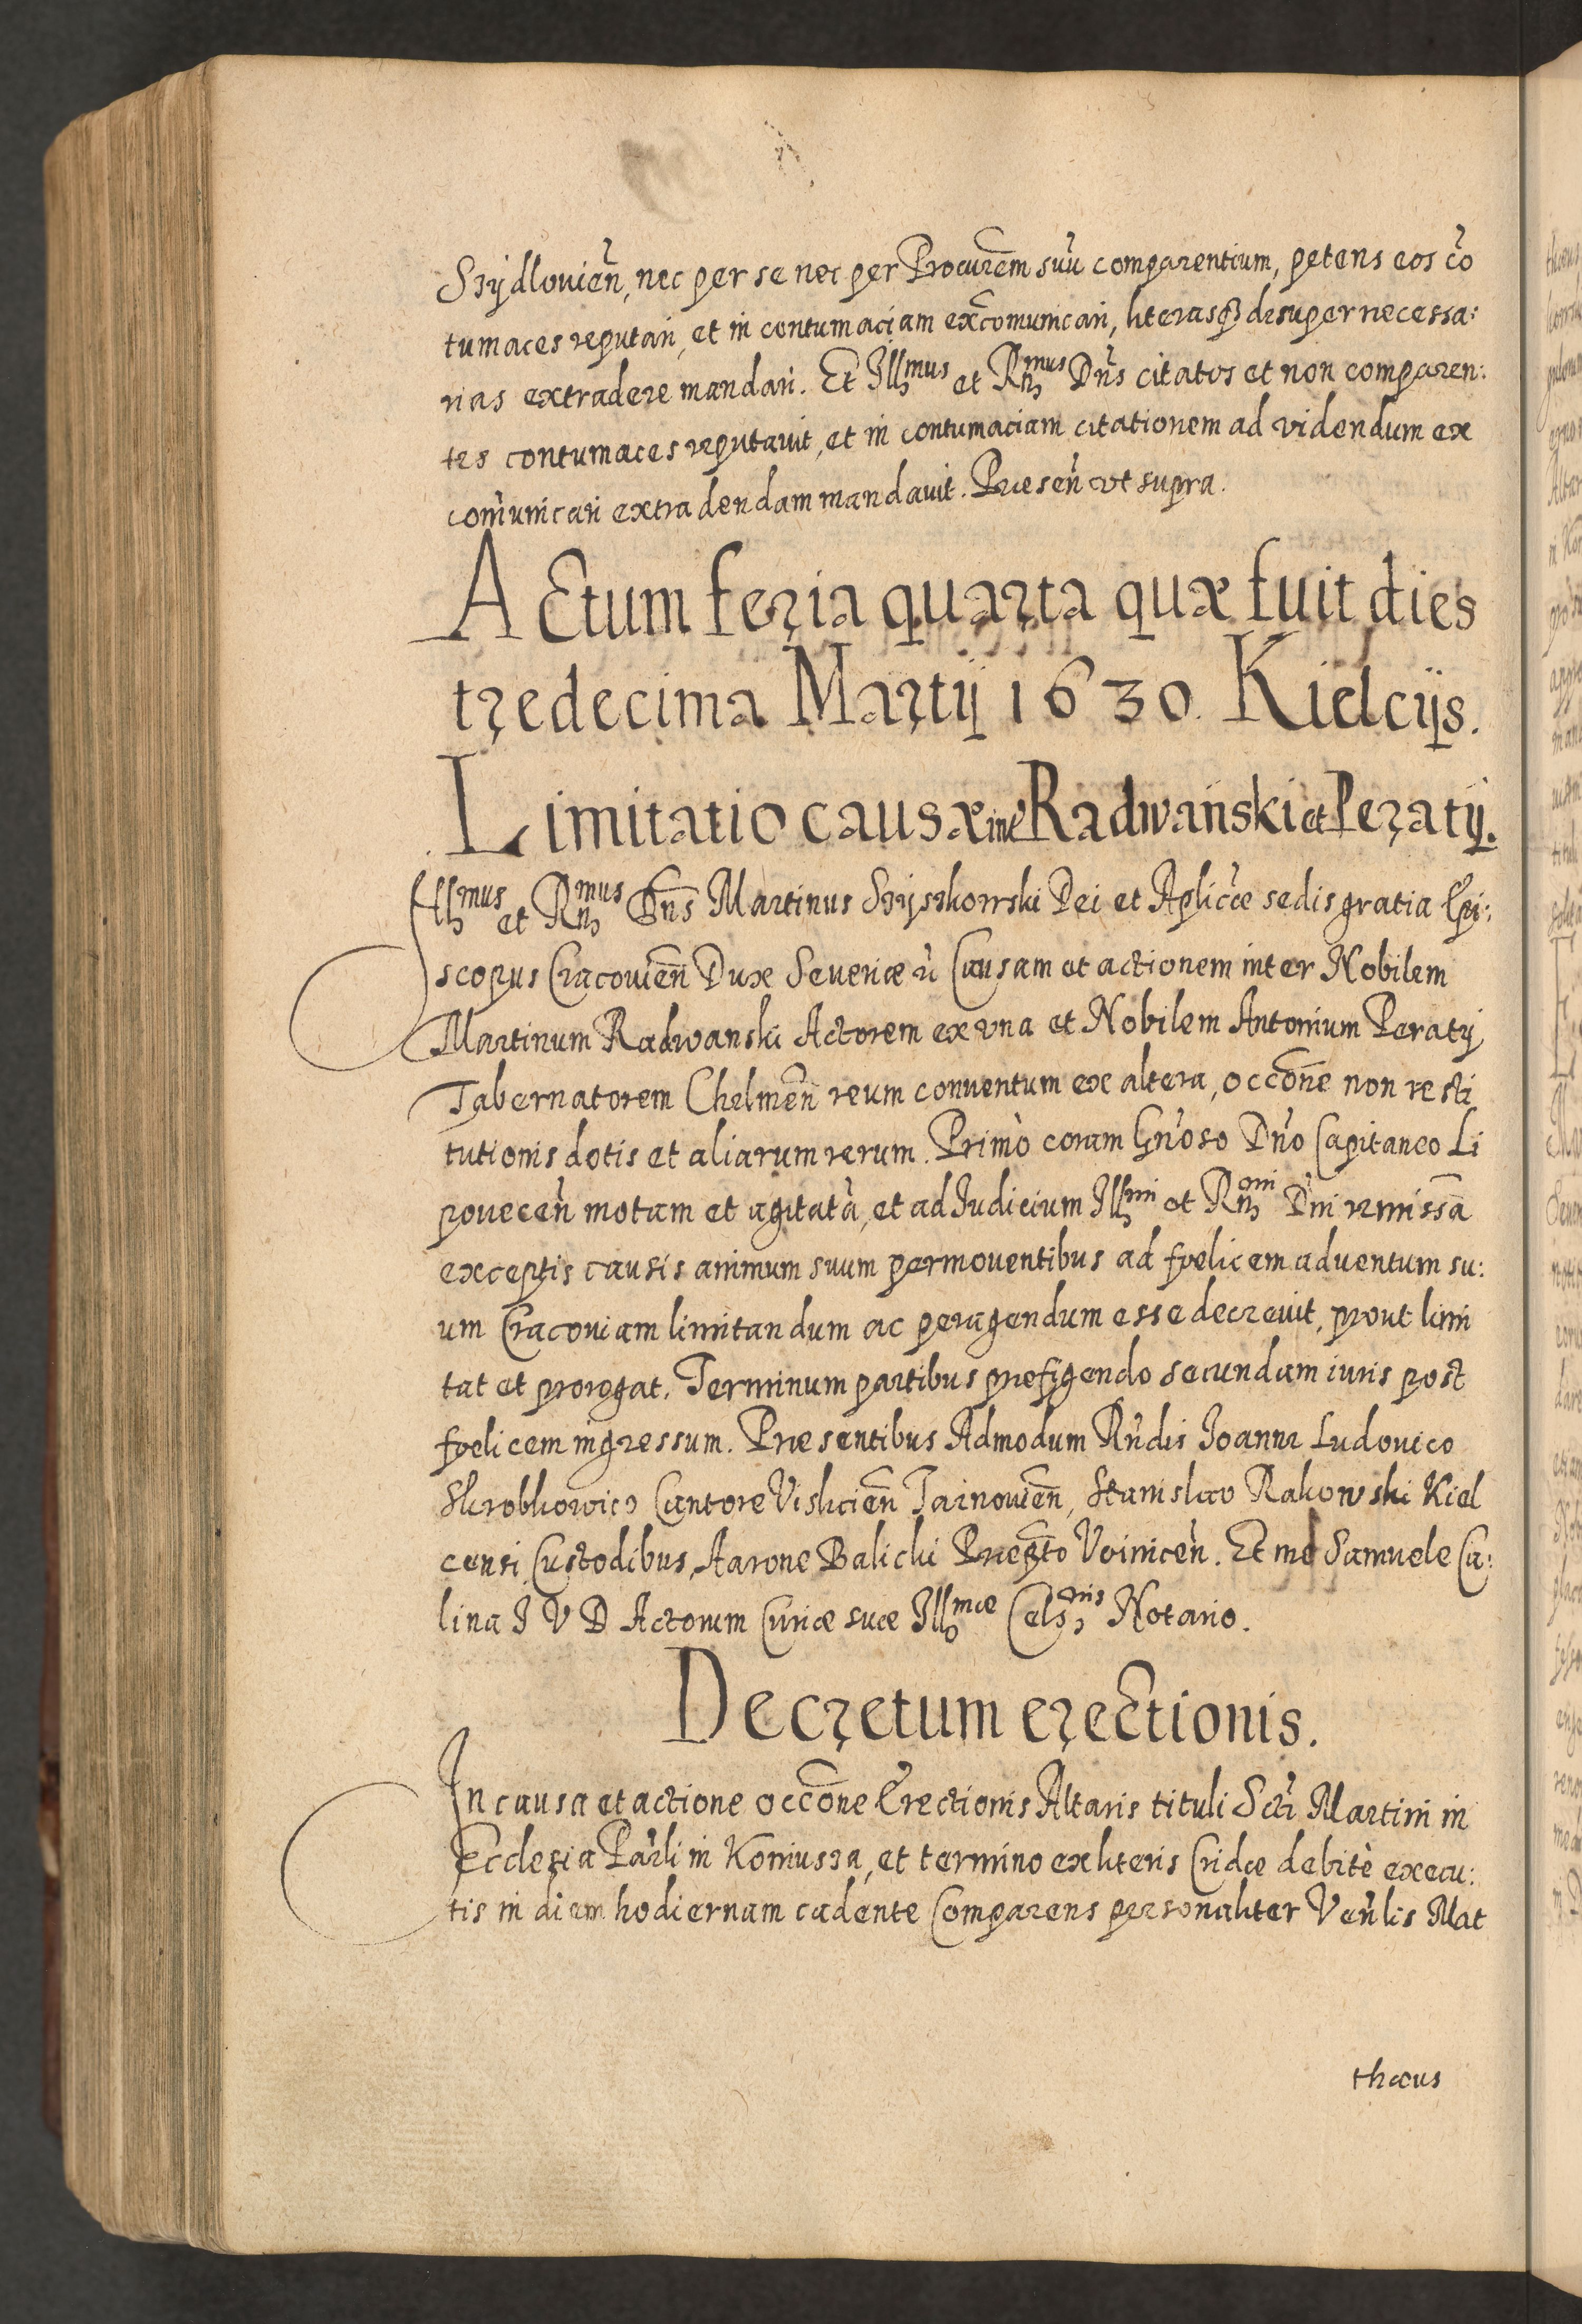 Szydlovien̄, nec per se nec per Procurem̄ suū comparentium, petens eos cō
tumaces reputari, et in contumaciam excōmunicari, literasq3 desuper necessa:
rias extradere mandari. Et Illmus et Rnmus Dn̄s citatos et non comparen:
tes contumaces reputavit, et in contumaciam citationem ad videndum ex
com̄unicari extradendam mandavit. Præsen̄ ut supra.
Actum feria quarta quæ fuit dies
tredecima Martij 1630. Kielcijs.
Limitatio causæ int Radwański et Peratÿ.
Illmus et Rnmus Dn̄s Martinus Szyszkowski Dei et Aplicæ sedis gratia Epi:
scopus Cracovien̄ Dux Severiæ Causam et actionem inter Nobilem
Martinum Radwanski Actorem ex una et Nobilem Antonium Peratÿ
Tabernatorem Chelmen̄ reum conventum ex altera, occōne non resti
tutionis dotis et aliarum rerum. Primò coram Gn̄oso Dn̄o Capitaneo Li
povecen̄ motam et agitatā, et ad Iudicium Illmi et Rnmi Dn̄i remissā
exceptis causis animum suum permoventibus ad fœlicem adventum su:
um Cracoviam limitandum ac peragendum esse decrevit, prout limi
tat et prorogat. Terminum partibus præfigendo secundam iuris post
fœlicem ingressum. Præsentibus Admodum Rn̄dis Ioanne Ludovico
Skrobkowicz Cantore Vislicien̄ Tarnovien̄, Stanislao Rakowski Kiel
censi Custodibus, Aarone Balicki Præpto Voinicen̄. Et me Samuele Ca:
lina I V D Actorum Curiæ suæ Illmæ Celsnis Notario.
Decretum erectionis.
In causa et actione occōne Erectionis Altaris tituli Scti Martini in
Ecclesia Parli in Koniusza, et termino ex literis Cridæ debitè execu:
tis in diem hodiernam cadente Comparens personaliter Ven̄lis Mat
thæus